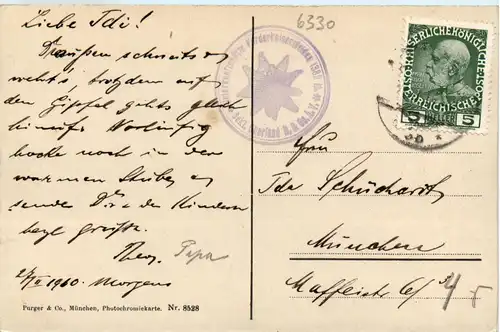 6330
Liebe Idi!
Draußen schneits u.
wehts, trotzdem auf
den Gipfel gehts gleich
hinauf. Vorläufig
hocke noch in der
warmen Stube u.
sende Dir u. den Kindern
Grüße.
Papa
1910. Morgens
KAISERLICHE KÖNIGLICHE
ÖSTERREICHISCHE
5 5
Frau
Ida Schuchardt
München
6/3
Purger & Co., München, Photochromiekarte. Nr. 8528